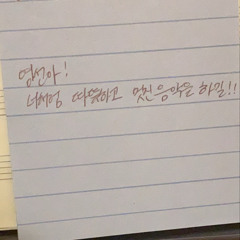 영선아!
너처럼 따뜻하고 멋진 음악을 하길!!